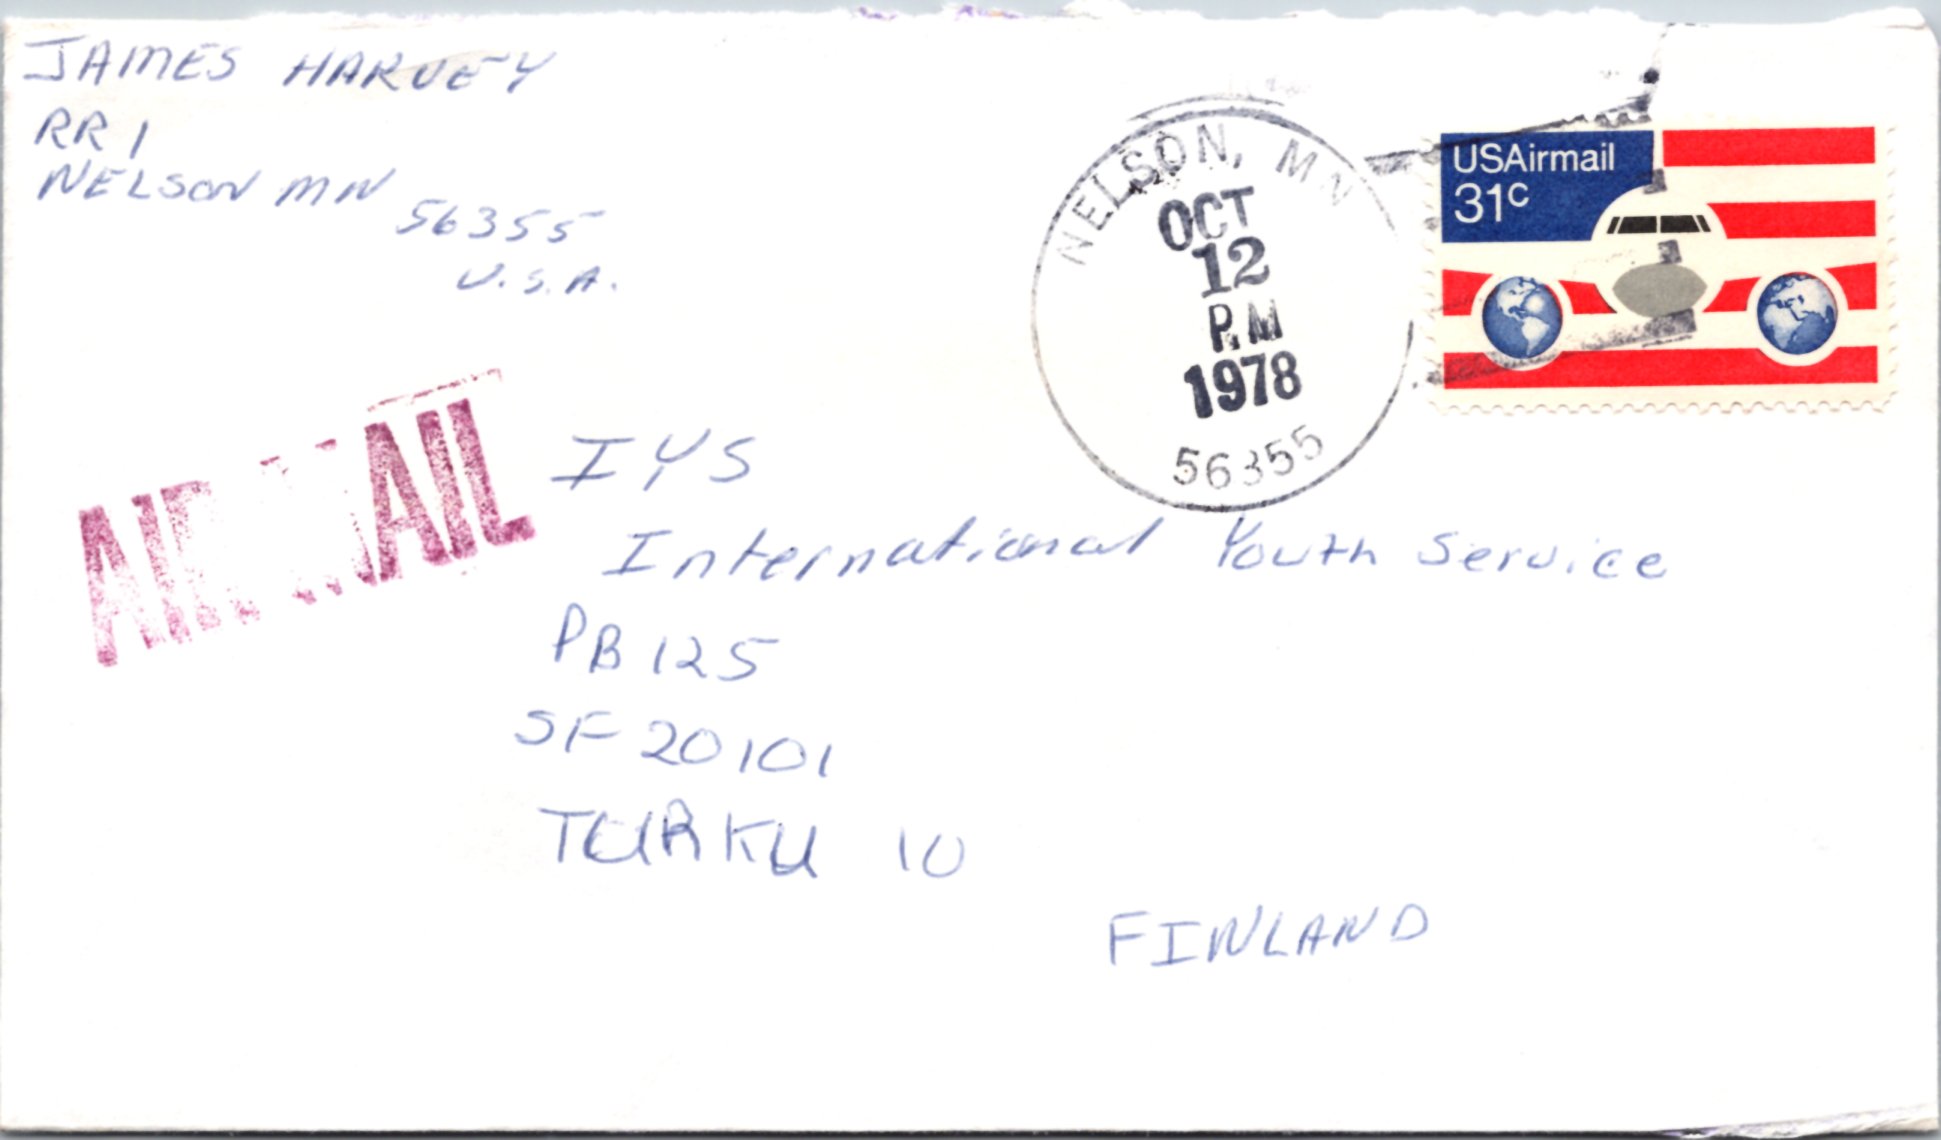 JAMES HARVEY
RR 1
NELSON MN
56355
U.S.A.
NELSON, MN
OCT
12
PM
1978
56355
USAirmail
31c
AIR MAIL
IYS
International Youth Service
PB 125
SF 20101
TURKU 10
FINLAND